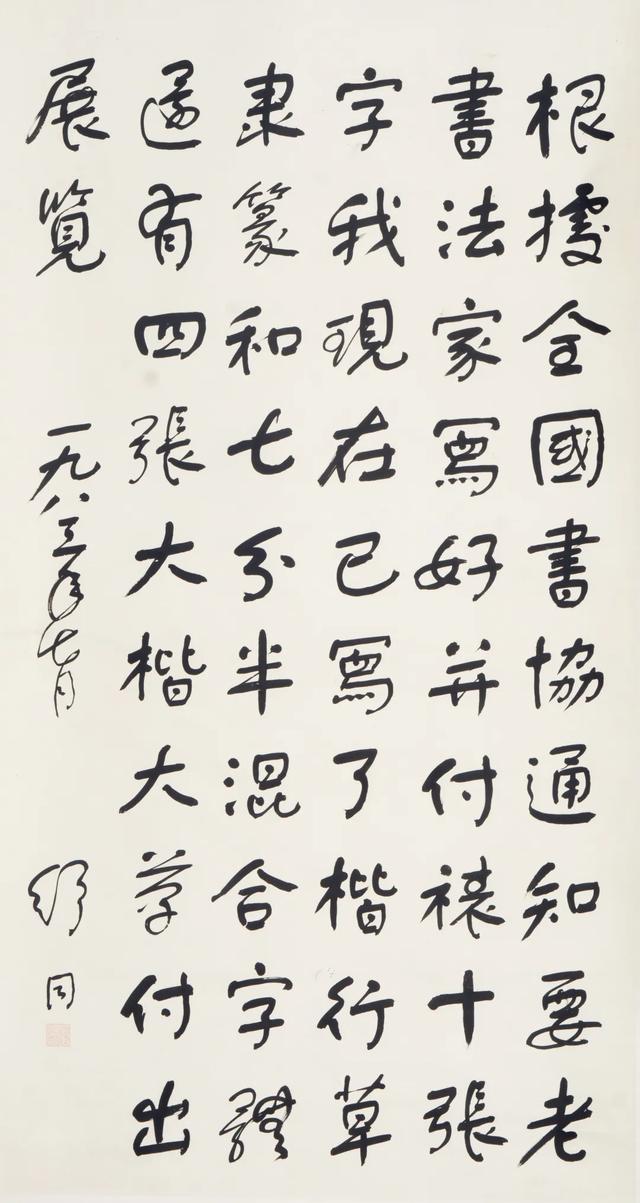 根據全國書協通知要老
書法家寫好并付裱十張
字我現在已寫了楷行草
隶篆和七分半混合字體
還有四張大楷大草付出
展覽 一九八三年七月 舒同